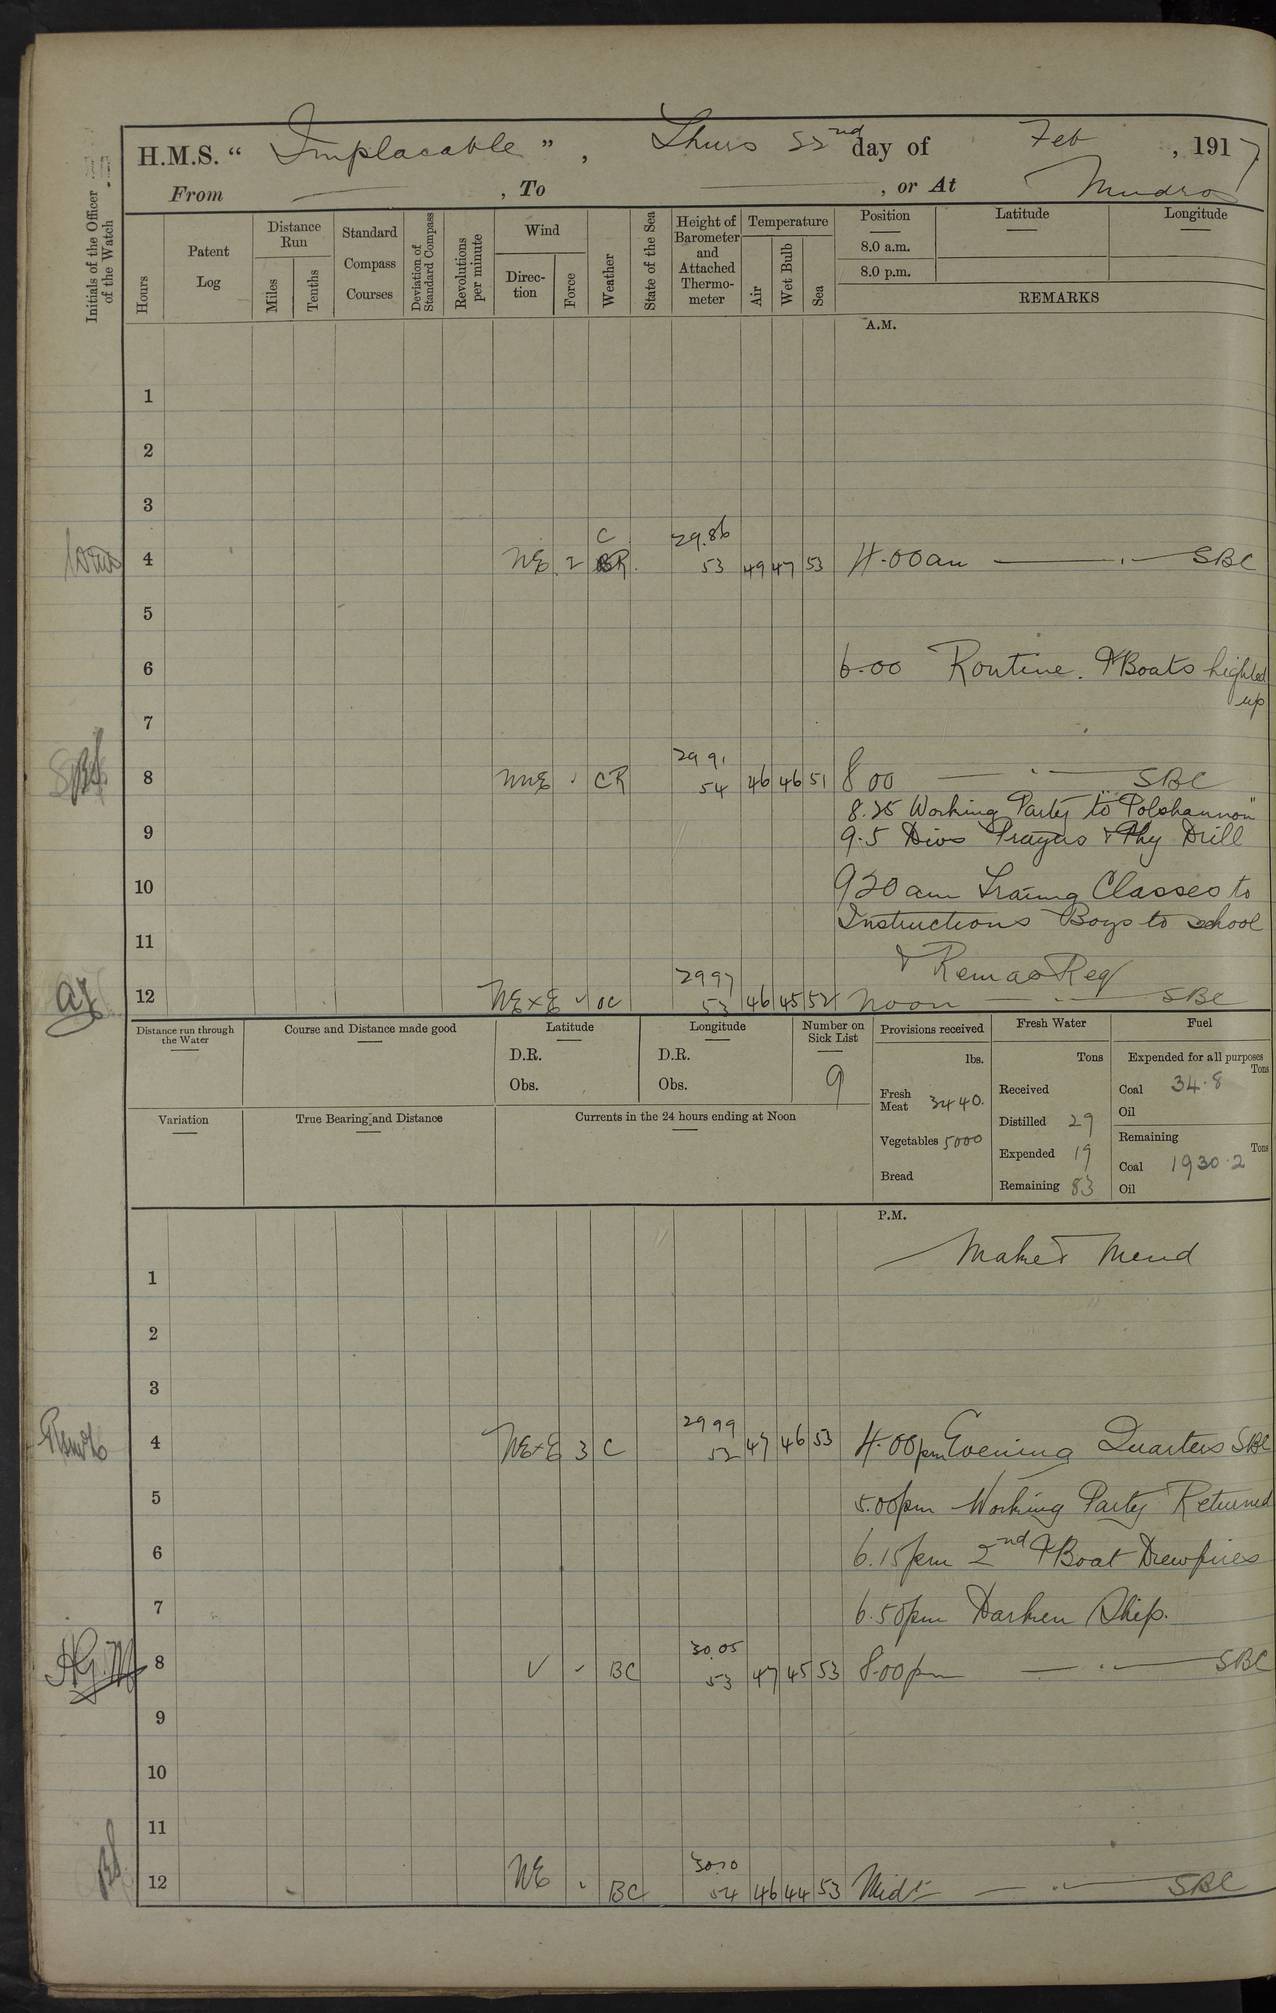 H.M.S. “ Implacable ” , Thurs 22nd day of Feb , 1917
From — , To — , or At Mudros
Initials of the Officer of the Watch
Hours
Patent Log
Distance Run
Miles
Tenths
Standard Compass Courses
Deviation of Standard Compass
Revolutions per minute
Wind
Direction
Force
Weather
State of the Sea
Height of Barometer and Attached Thermometer
Temperature
Air
Wet Bulb
Sea
Position
8.0 a.m.
8.0 p.m.
Latitude
Longitude
REMARKS
A.M.
1
2
3
C 29.86
4 NE 2 R 53 49 47 53 4.00am — . — SBC
5
6 6.00 Routine. PBoats lighted
up
7
29 91
8 NNE ' CR 54 46 46 51 8 00 — . — SBC
8.25 Working Party to "Polshannon"
9 9.5 Divs Prayers & Phy Drill
10 9 20 am Traing Classes to
Instructions Boys to school
11
& Remas Req
29 97
12 NE x E ✓ oc 53 46 45 52 Noon — . — SBC
Distance run through the Water
Course and Distance made good
Latitude
D.R.
Obs.
Longitude
D.R.
Obs.
Number on Sick List
9
Provisions received
lbs.
Fresh Meat 3440.
Vegetables 5000
Bread
Fresh Water
Tons
Received
Distilled 29
Expended 19
Remaining 83
Fuel
Expended for all purposes
Tons
Coal 34.8
Oil
Remaining
Tons
Coal 1930.2
Oil
Variation
True Bearing and Distance
Currents in the 24 hours ending at Noon
P.M.
Make & Mend
1
2
3
29 99
4 NE x E 3 C 52 47 46 53 4.00pm Evening Quarters SBC
5 5.00pm Working Party Returned
6 6.15pm 2nd PBoat Drew fires
7 6.50pm Darken Ship.
30.05
H.G.M. 8 ✓ ✓ BC 53 47 45 53 8.00pm — . — SBC
9
10
11
30.10
12 NE ' BC 54 46 44 53 Midt — . — SBC